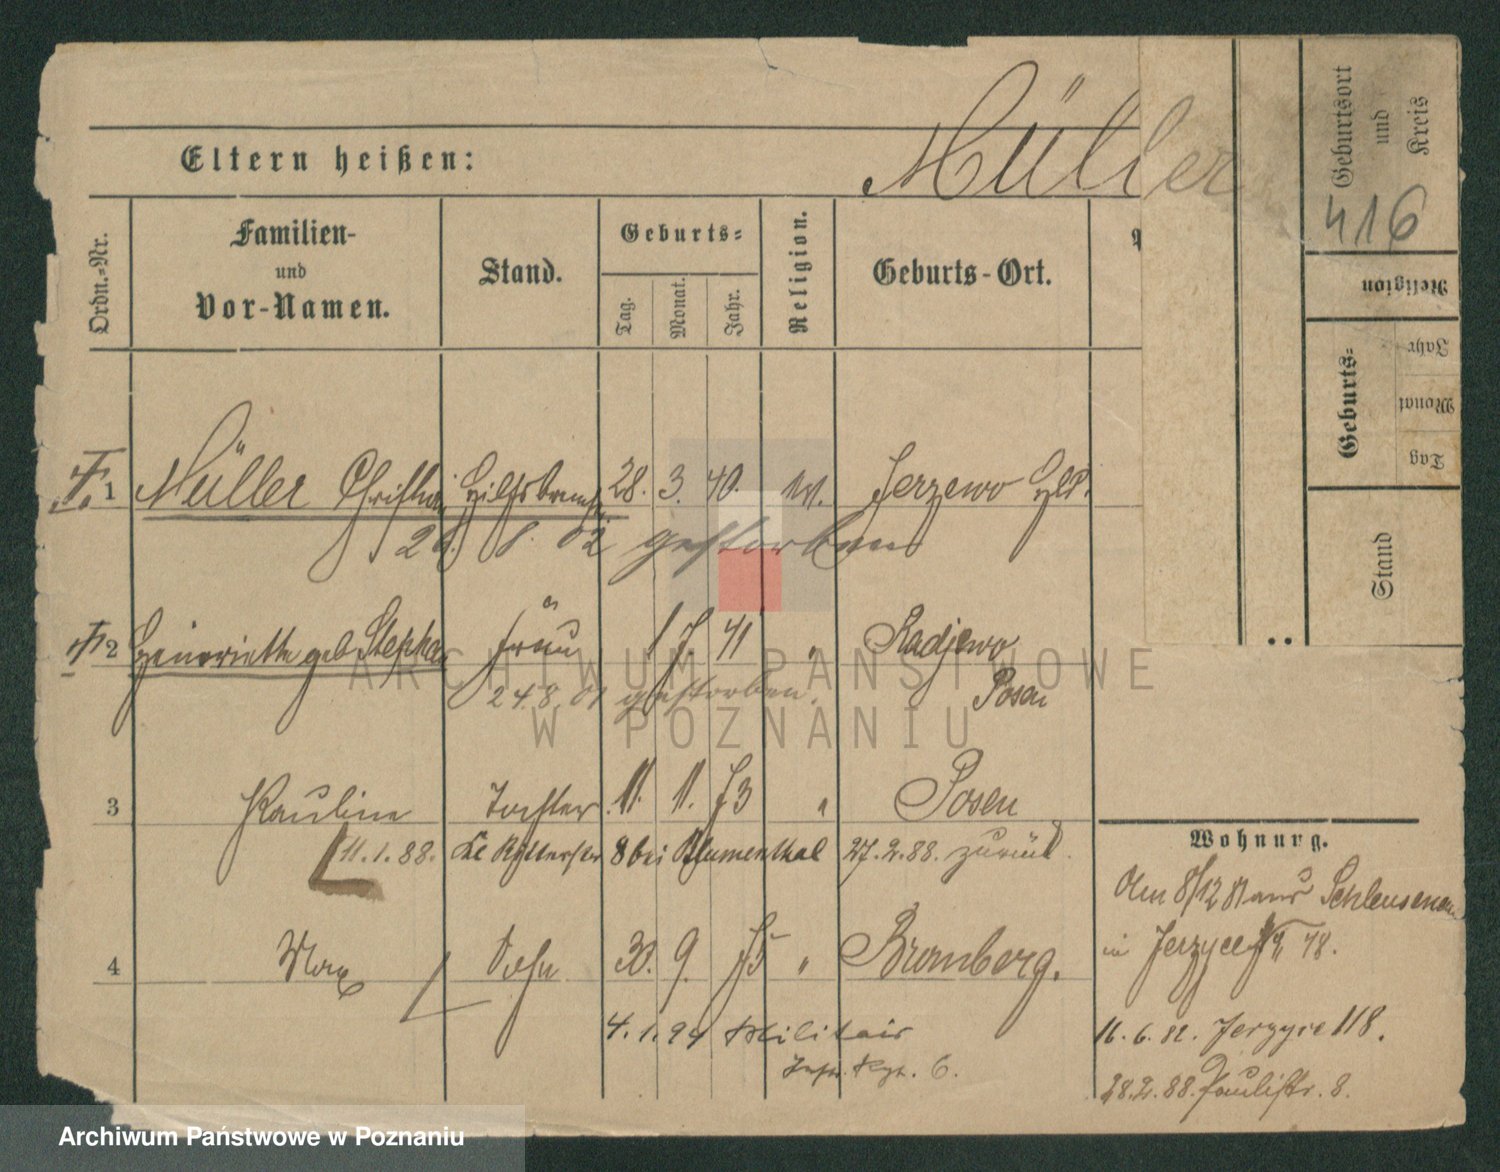 Müller
Eltern heißen:
Ordn.=Nr.
Familien-
und
Vor-Namen.
Stand.
Geburts=
Tag.
Monat.
Jahr.
Religion.
Geburts-Ort.
Geburtsort
und
Kreis
416
Religion
Geburts=
Jahr
Monat
Tag
Stand
1 Müller 28. 3. 40. Jerzewo
26. 8. 02 gestorben
2 Henriette geb Stephan Frau 1 7. 41 " Radjewo
Posen
24.8.01 gestorben.
3 Pauline Tochter 11. 11. 73 " Posen
11.1.88. 8 bei Blumenthal 27.2.88. zurück.
4 Max Sohn 30. 9. 75 " Bromberg.
4.1.94 Militair
Inft. Rgt. 6.
Wohnung.
Am 8/12 81 aus Schleusenau
in 78.
16.6.82. Jerzyce 118.
28.2.88. Paulistr. 8.
ARCHIWUM PAŃSTWOWE
W POZNANIU
Archiwum Państwowe w Poznaniu